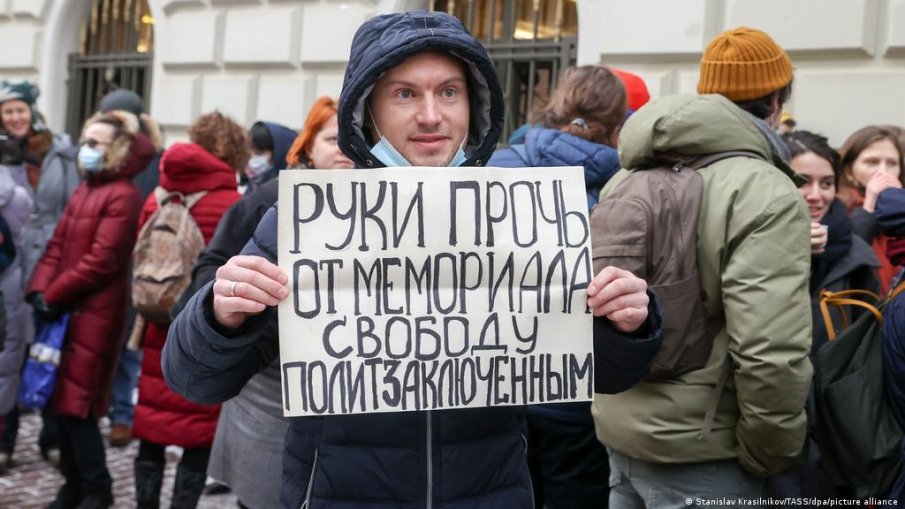 РУКИ ПРОЧЬ
ОТ МЕМОРИАЛА
СВОБОДУ
ПОЛИТЗАКЛЮЧЁННЫМ
© Stanislav Krasilnikov/TASS/dpa/picture alliance